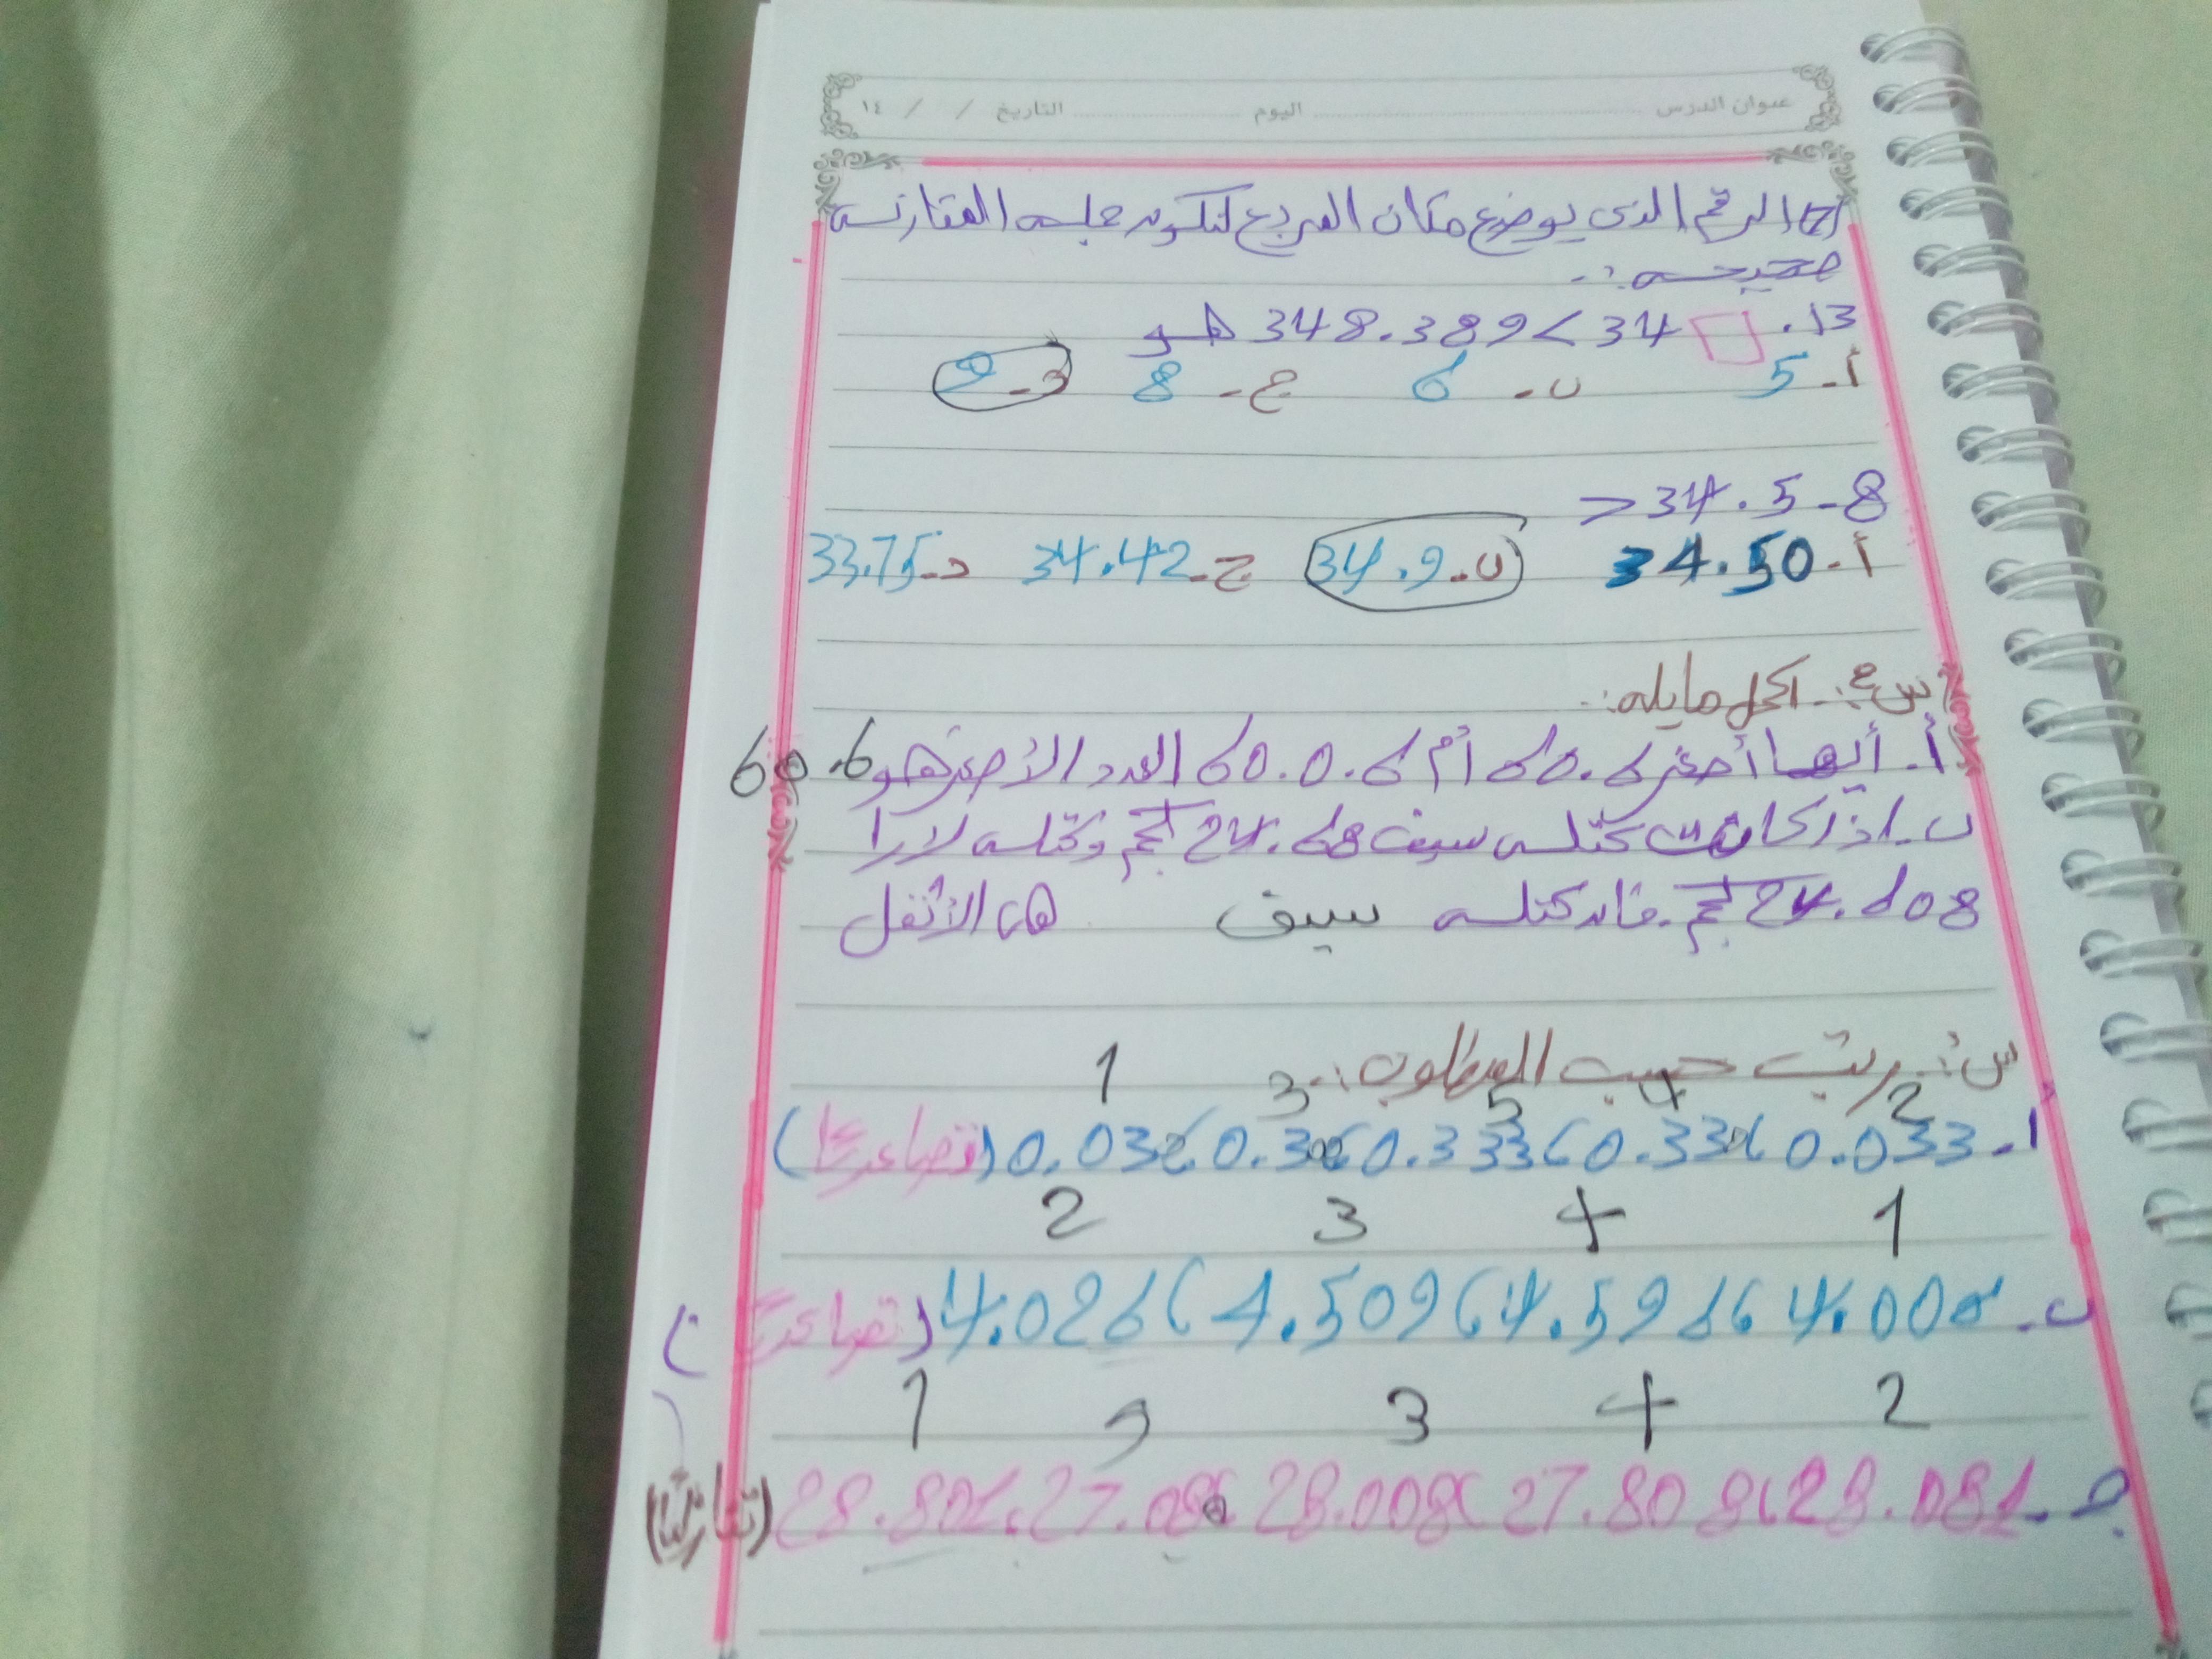 عنوان الدرس اليوم التاريخ / / ١٤
(7) الرقم الذى يوضع مكان المربع لتكون جملة المقارنة
صحيحة :-
348.389 < 34□.13 هو
أ- 5 ب- 6 ج- 8 د- 9
8- 34.5 <
أ- 34.50 ب- 34.9 ج- 34.42 د- 33.75
س2:- اكمل مايلى :-
أ- أيهما أصغر 60.6 أم 60.0.6 العدد الأصغر هو 60.6
ب- اذا كانت كتلة سيف 24.68 كجم وكتلة لارا
24.608 كجم. فان كتلة سيف هى الأثقل
س:- رتب حسب المطلوب :-
1 3 5 4 2
أ- 0.033 ، 0.33 ، 0.333 ، 0.3 ، 0.03 (تصاعديًا)
2 3 4 1
ب- 4.00 ، 4.596 ، 4.509 ، 4.026 (تصاعديًا)
1 5 3 4 2
ج- 28.081 ، 27.808 ، 28.008 ، 27.08 ، 28.801 (تنازليًا)